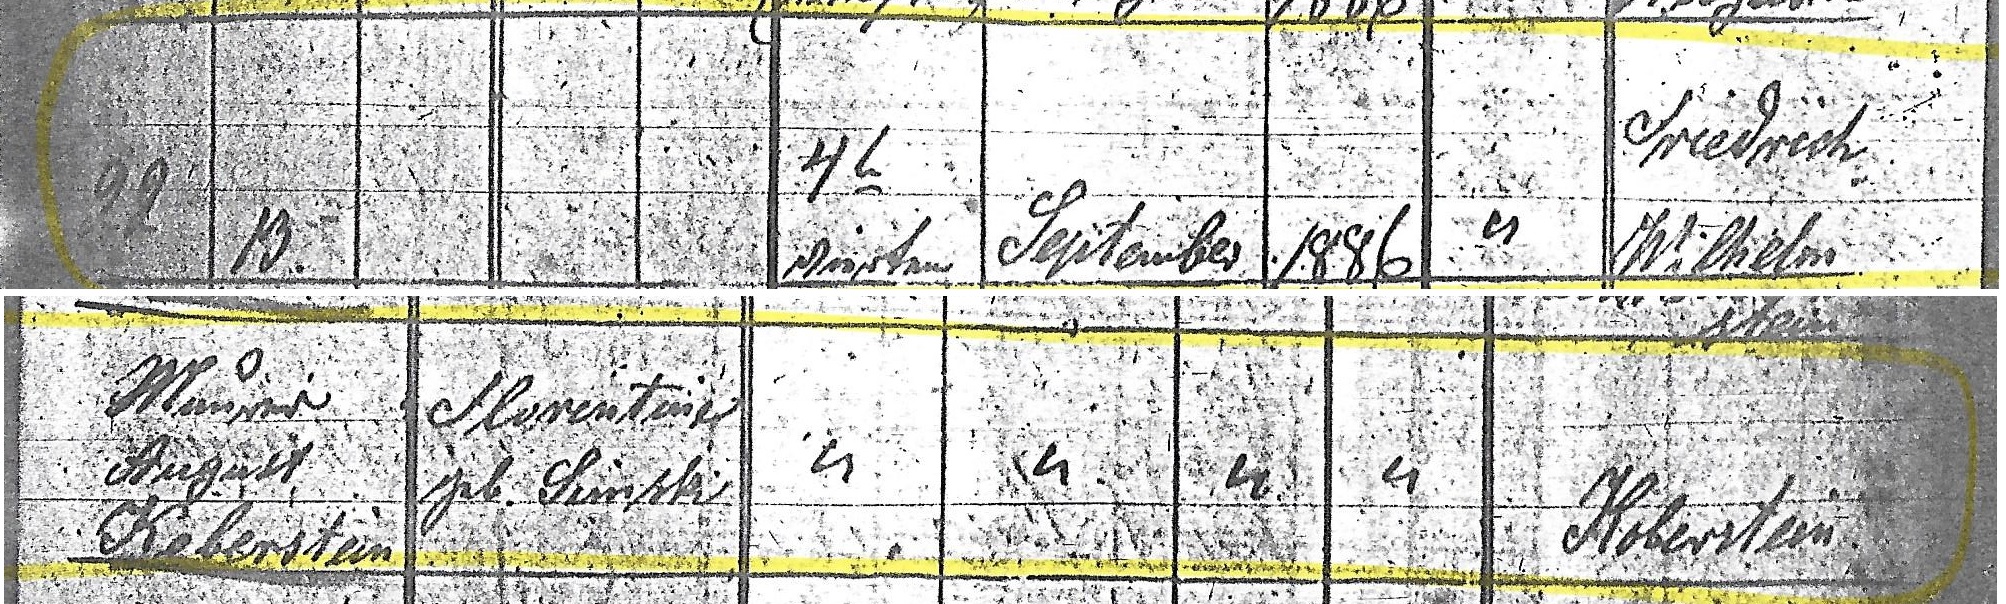 99 B. 4 h
vierten September 1886 "
Friedrich
Wilhelm
stein
Maurer
August
Koberstein
Florentine
geb. Simski
" " " "
Koberstein